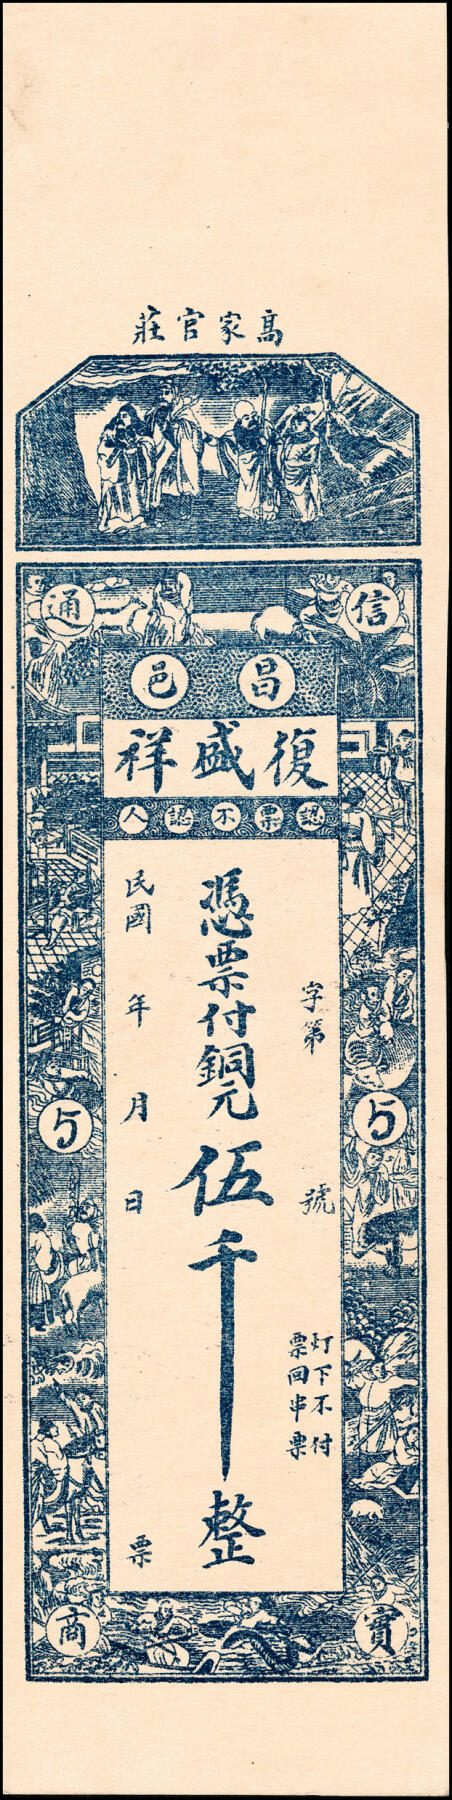 高家官莊
信通
昌邑
復盛祥
認票不認人
字第 號
灯下不付
票回串票
憑票付銅元伍千整
民國 年 月 日 票
5
5
寳商